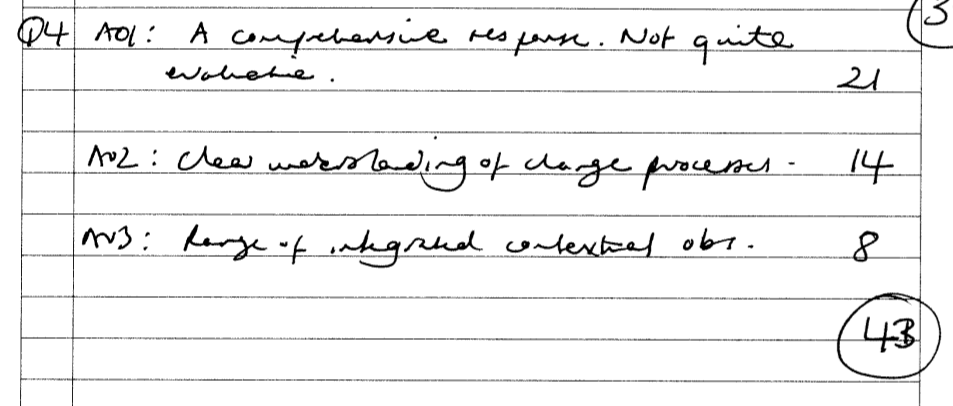 3
Q4 AO1: A comprehensive response. Not quite
evaluative. 21
AO2: Clear understanding of change processes - 14
AO3: Range of integrated contextual obs. 8
43